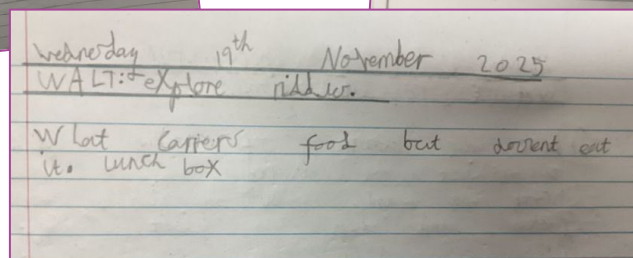 Wednesday 19th November 2025
WALT: explore riddles.
What carriers food but dosent eat
it. Lunch box